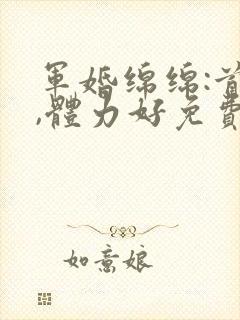 軍婚綿綿:首
,體力好免費
如意娘